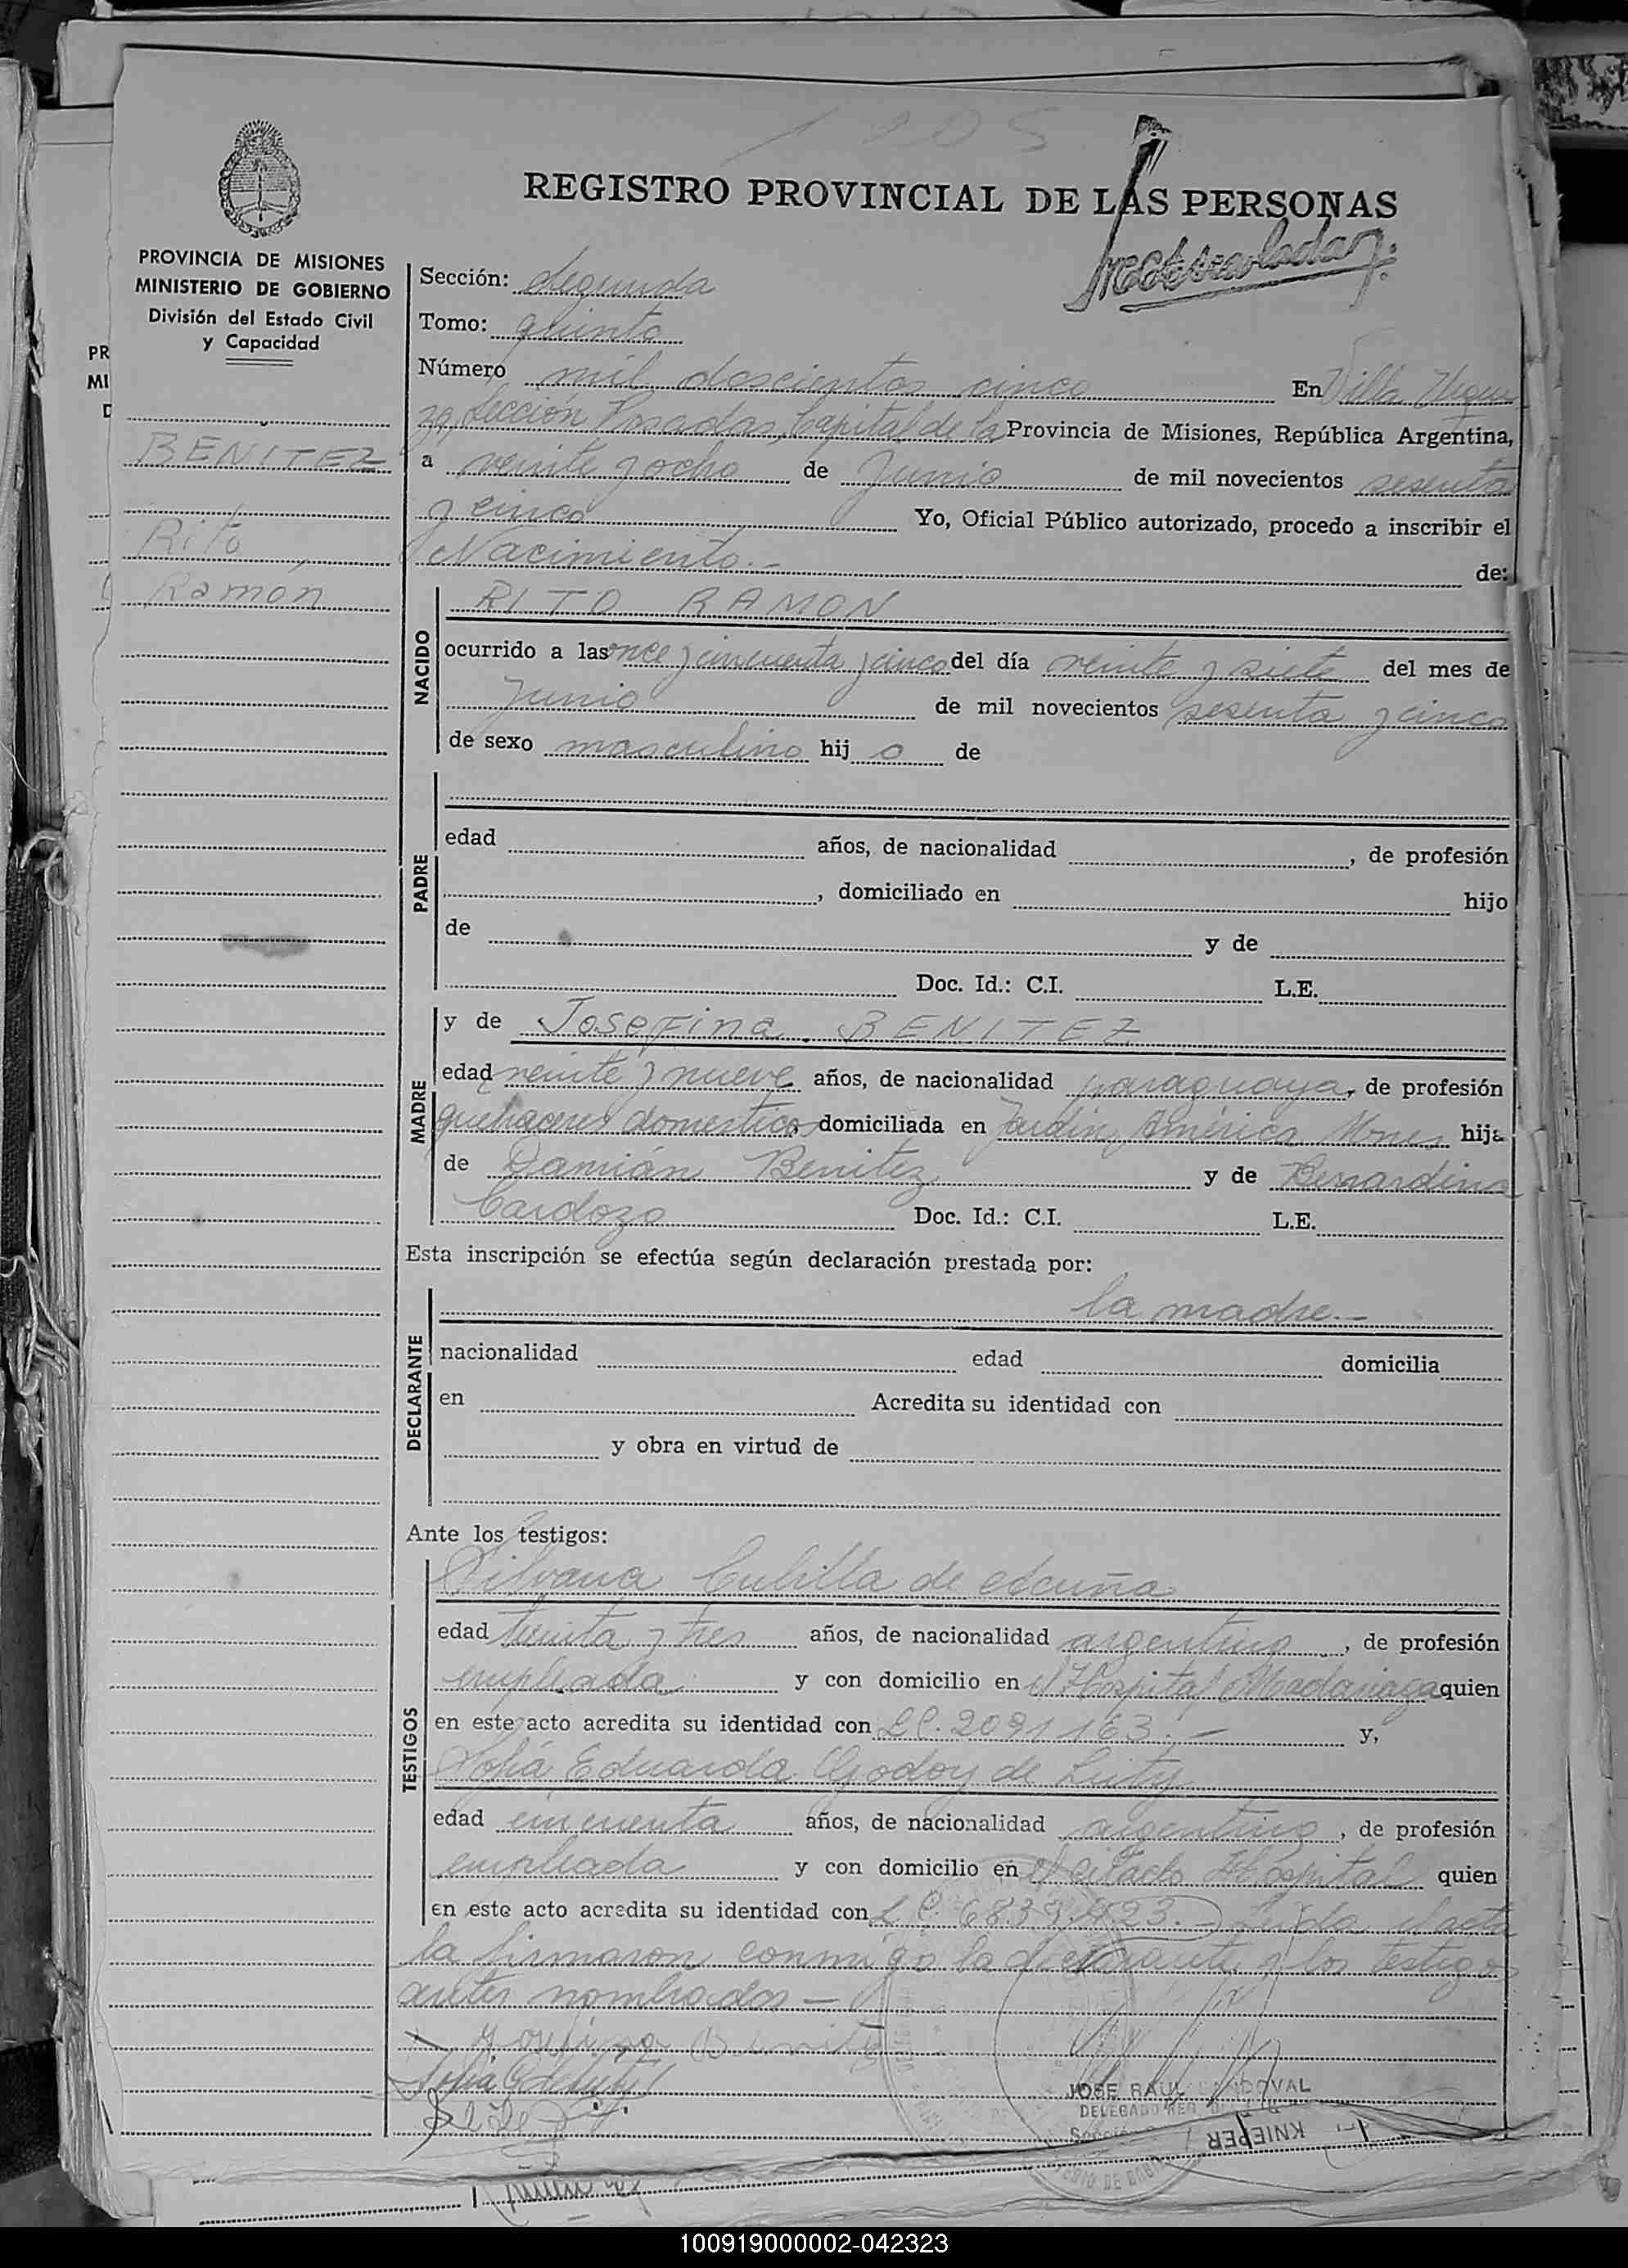 1205
REGISTRO PROVINCIAL DE LAS PERSONAS
PROVINCIA DE MISIONES
MINISTERIO DE GOBIERNO
División del Estado Civil
y Capacidad
BENITEZ
Rito
Ramón
Sección: Segunda
Tomo: quinto
Número mil doscientos cinco En Villa Urqui
za, Sección Posadas, Capital de la Provincia de Misiones, República Argentina,
a veinte y ocho de Junio de mil novecientos sesenta
y cinco Yo, Oficial Público autorizado, procedo a inscribir el
Nacimiento.- de:
NACIDO
RITO RAMON
ocurrido a las once y cincuenta y cinco del día veinte y siete del mes de
Junio de mil novecientos sesenta y cinco
de sexo masculino hij o de
PADRE
edad años, de nacionalidad , de profesión
, domiciliado en hijo
de y de
Doc. Id.: C.I. L.E.
MADRE
y de Josefina BENITEZ
edad veinte y nueve años, de nacionalidad paraguaya, de profesión
quehaceres domesticos domiciliada en Jardín América Mnes hija
de Damián Benitez y de Bernardina
Cardozo Doc. Id.: C.I. L.E.
Esta inscripción se efectúa según declaración prestada por:
DECLARANTE
la madre.-
nacionalidad edad domicilia
en Acredita su identidad con
y obra en virtud de
Ante los testigos:
TESTIGOS
Silvana Cubilla de Acuña
edad treinta y tres años, de nacionalidad argentina, de profesión
empleada y con domicilio en el Hospital Madariaga quien
en este acto acredita su identidad con L.C. 2091163.- y,
Sofia Eduarda Godoy de
edad cincuenta años, de nacionalidad argentina, de profesión
empleada y con domicilio en el citado Hospital quien
en este acto acredita su identidad con L.C. 6839.423.- Leida el acta
la firmaron conmigo la declarante y los testigos
antes nombrados -
Josefina Benitez
JOSE RAUL SANDOVAL
KNIEPER
100919000002-042323